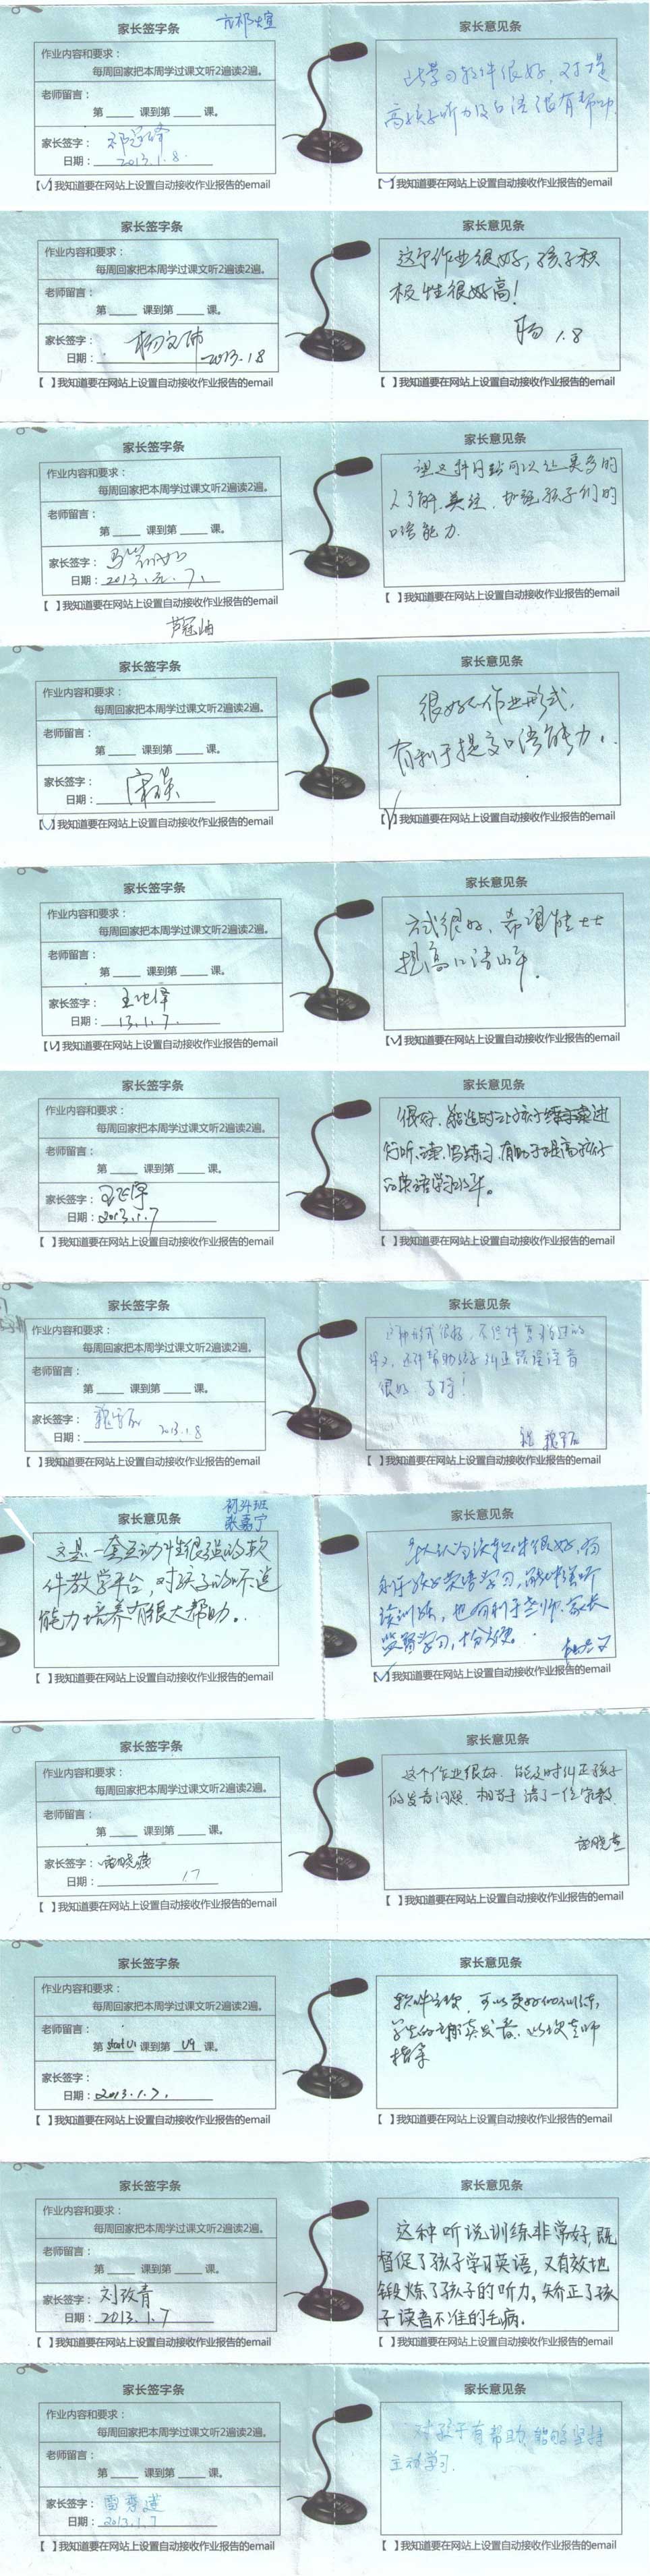 家长签字条
作业内容和要求：
每周回家把本周学过课文听2遍读2遍。
老师留言：
第 课到第 课。
家长签字：
日期：2013.1.8.
【√】我知道要在网站上设置自动接收作业报告的email
家长意见条
此学习软件很好，对提
高孩子听力及口语很有帮助.
【√】我知道要在网站上设置自动接收作业报告的email
家长签字条
作业内容和要求：
每周回家把本周学过课文听2遍读2遍。
老师留言：
第 课到第 课。
家长签字：
日期：2013.1.8
【 】我知道要在网站上设置自动接收作业报告的email
家长意见条
这个作业很好，孩子积
极性很好高！
杨 1.8
【 】我知道要在网站上设置自动接收作业报告的email
家长签字条
作业内容和要求：
每周回家把本周学过课文听2遍读2遍。
老师留言：
第 课到第 课。
家长签字：
日期：2013.元.7.
【 】我知道要在网站上设置自动接收作业报告的email
家长意见条
可以让更多的
人了解.关注.加强孩子们的
口语能力.
【 】我知道要在网站上设置自动接收作业报告的email
家长签字条
作业内容和要求：
每周回家把本周学过课文听2遍读2遍。
老师留言：
第 课到第 课。
家长签字：
日期：
【√】我知道要在网站上设置自动接收作业报告的email
家长意见条
很好的作业形式，
有利于提高口语能力..
【√】我知道要在网站上设置自动接收作业报告的email
家长签字条
作业内容和要求：
每周回家把本周学过课文听2遍读2遍。
老师留言：
第 课到第 课。
家长签字：
日期：13.1.7.
【√】我知道要在网站上设置自动接收作业报告的email
家长意见条
方式很好、希望能
提高口语水平.
【√】我知道要在网站上设置自动接收作业报告的email
家长签字条
作业内容和要求：
每周回家把本周学过课文听2遍读2遍。
老师留言：
第 课到第 课。
家长签字：
日期：2013.1.7
【 】我知道要在网站上设置自动接收作业报告的email
家长意见条
很好.能适时让孩子进
行听.读.写练习.有助于提高孩子
的英语学习水平。
【 】我知道要在网站上设置自动接收作业报告的email
家长签字条
作业内容和要求：
每周回家把本周学过课文听2遍读2遍。
老师留言：
第 课到第 课。
家长签字：
日期：2013.1.8
【 】我知道要在网站上设置自动接收作业报告的email
家长意见条
这种形式很好，不但
帮助孩子纠正错误读音
很好 支持！
【 】我知道要在网站上设置自动接收作业报告的email
初升班
张嘉宁
家长意见条
这是一套互动性很强的软
件教学平台，对孩子的听造
能力培养有很大帮助..
【 】我知道要在网站上设置自动接收作业报告的email
家长意见条
我认为该软件很好，有
利于孩子英语学习，
读训练，也有利于老师、家长
监督学习，十分方便。
【√】我知道要在网站上设置自动接收作业报告的email
家长签字条
作业内容和要求：
每周回家把本周学过课文听2遍读2遍。
老师留言：
第 课到第 课。
家长签字：
日期：1.7
【 】我知道要在网站上设置自动接收作业报告的email
家长意见条
这个作业很好.能及时纠正孩子
的发音问题.相当于请了一位家教.
【 】我知道要在网站上设置自动接收作业报告的email
家长签字条
作业内容和要求：
每周回家把本周学过课文听2遍读2遍。
老师留言：
第 start U1 课到第 U9 课。
家长签字：
日期：2013.1.7.
【 】我知道要在网站上设置自动接收作业报告的email
家长意见条
软件，可以更好的训练，
学生的朗读发音，
【 】我知道要在网站上设置自动接收作业报告的email
家长签字条
作业内容和要求：
每周回家把本周学过课文听2遍读2遍。
老师留言：
第 课到第 课。
家长签字：刘改青
日期：2013.1.7
【 】我知道要在网站上设置自动接收作业报告的email
家长意见条
这种听说训练非常好，既
督促了孩子学习英语，又有效地
锻炼了孩子的听力，矫正了孩
子读音不准的毛病.
【 】我知道要在网站上设置自动接收作业报告的email
家长签字条
作业内容和要求：
每周回家把本周学过课文听2遍读2遍。
老师留言：
第 课到第 课。
家长签字：
日期：2013.1.7
【 】我知道要在网站上设置自动接收作业报告的email
家长意见条
对孩子有帮助，能够坚持
主动学习.
【 】我知道要在网站上设置自动接收作业报告的email